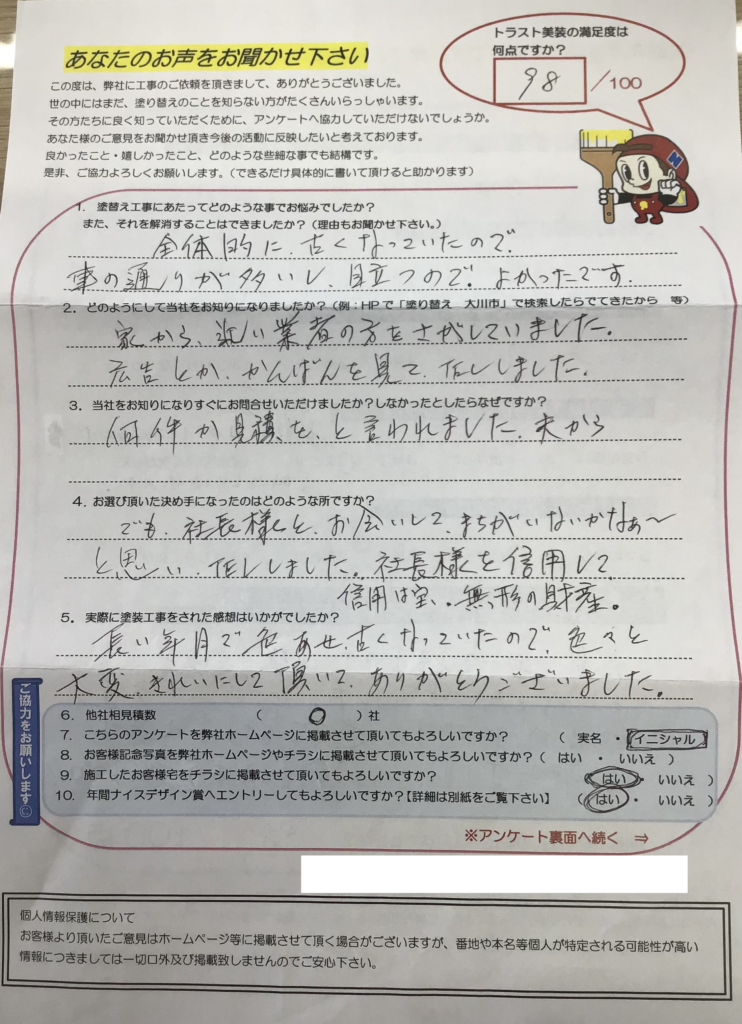 あなたのお声をお聞かせ下さい
トラスト美装の満足度は
何点ですか?
98 /100
この度は、弊社に工事のご依頼を頂きまして、ありがとうございました。
世の中にはまだ、塗り替えのことを知らない方がたくさんいらっしゃいます。
その方たちに良く知っていただくために、アンケートへ協力していただけないでしょうか。
あなた様のご意見をお聞かせ頂き今後の活動に反映したいと考えております。
良かったこと・嬉しかったこと、どのような些細な事でも結構です。
是非、ご協力よろしくお願いします。(できるだけ具体的に書いて頂けると助かります)
N
1. 塗替え工事にあたってどのような事でお悩みでしたか?
また、それを解消することはできましたか?(理由もお聞かせ下さい。)
全体的に、古くなっていたので、
車の通りが多いし、目立つので。よかったです。
2. どのようにして当社をお知りになりましたか?(例:HPで「塗り替え 大川市」で検索したらでてきたから 等)
家から、近い業者の方をさがしていました。
広告とか、かんばんを見て、伝しました。
3. 当社をお知りになりすぐにお問合せいただけましたか?しなかったとしたらなぜですか?
何件か見積を、と言われました、夫から
4. お選び頂いた決め手になったのはどのような所ですか?
でも、社長様と、お会いして、まちがいないかなぁ〜
と思い、伝しました。社長様を信用して
信用は宝、無形の財産。
5. 実際に塗装工事をされた感想はいかがでしたか?
長い年月で色あせ、古くなっていたので、色々と
大変、きれいにして頂いて、ありがとうございました。
ご協力をお願いします
6. 他社相見積数 ( 0 )社
7. こちらのアンケートを弊社ホームページに掲載させて頂いてもよろしいですか? ( 実名 ・ イニシャル )
8. お客様記念写真を弊社ホームページやチラシに掲載させて頂いてもよろしいですか?( はい ・ いいえ )
9. 施工したお客様宅をチラシに掲載させて頂いてもよろしいですか? ( はい ・ いいえ )
10. 年間ナイスデザイン賞へエントリーしてもよろしいですか?【詳細は別紙をご覧下さい】 ( はい ・ いいえ )
※アンケート裏面へ続く ⇒
個人情報保護について
お客様より頂いたご意見はホームページ等に掲載させて頂く場合がございますが、番地や本名等個人が特定される可能性が高い
情報につきましては一切口外及び掲載致しませんのでご安心下さい。